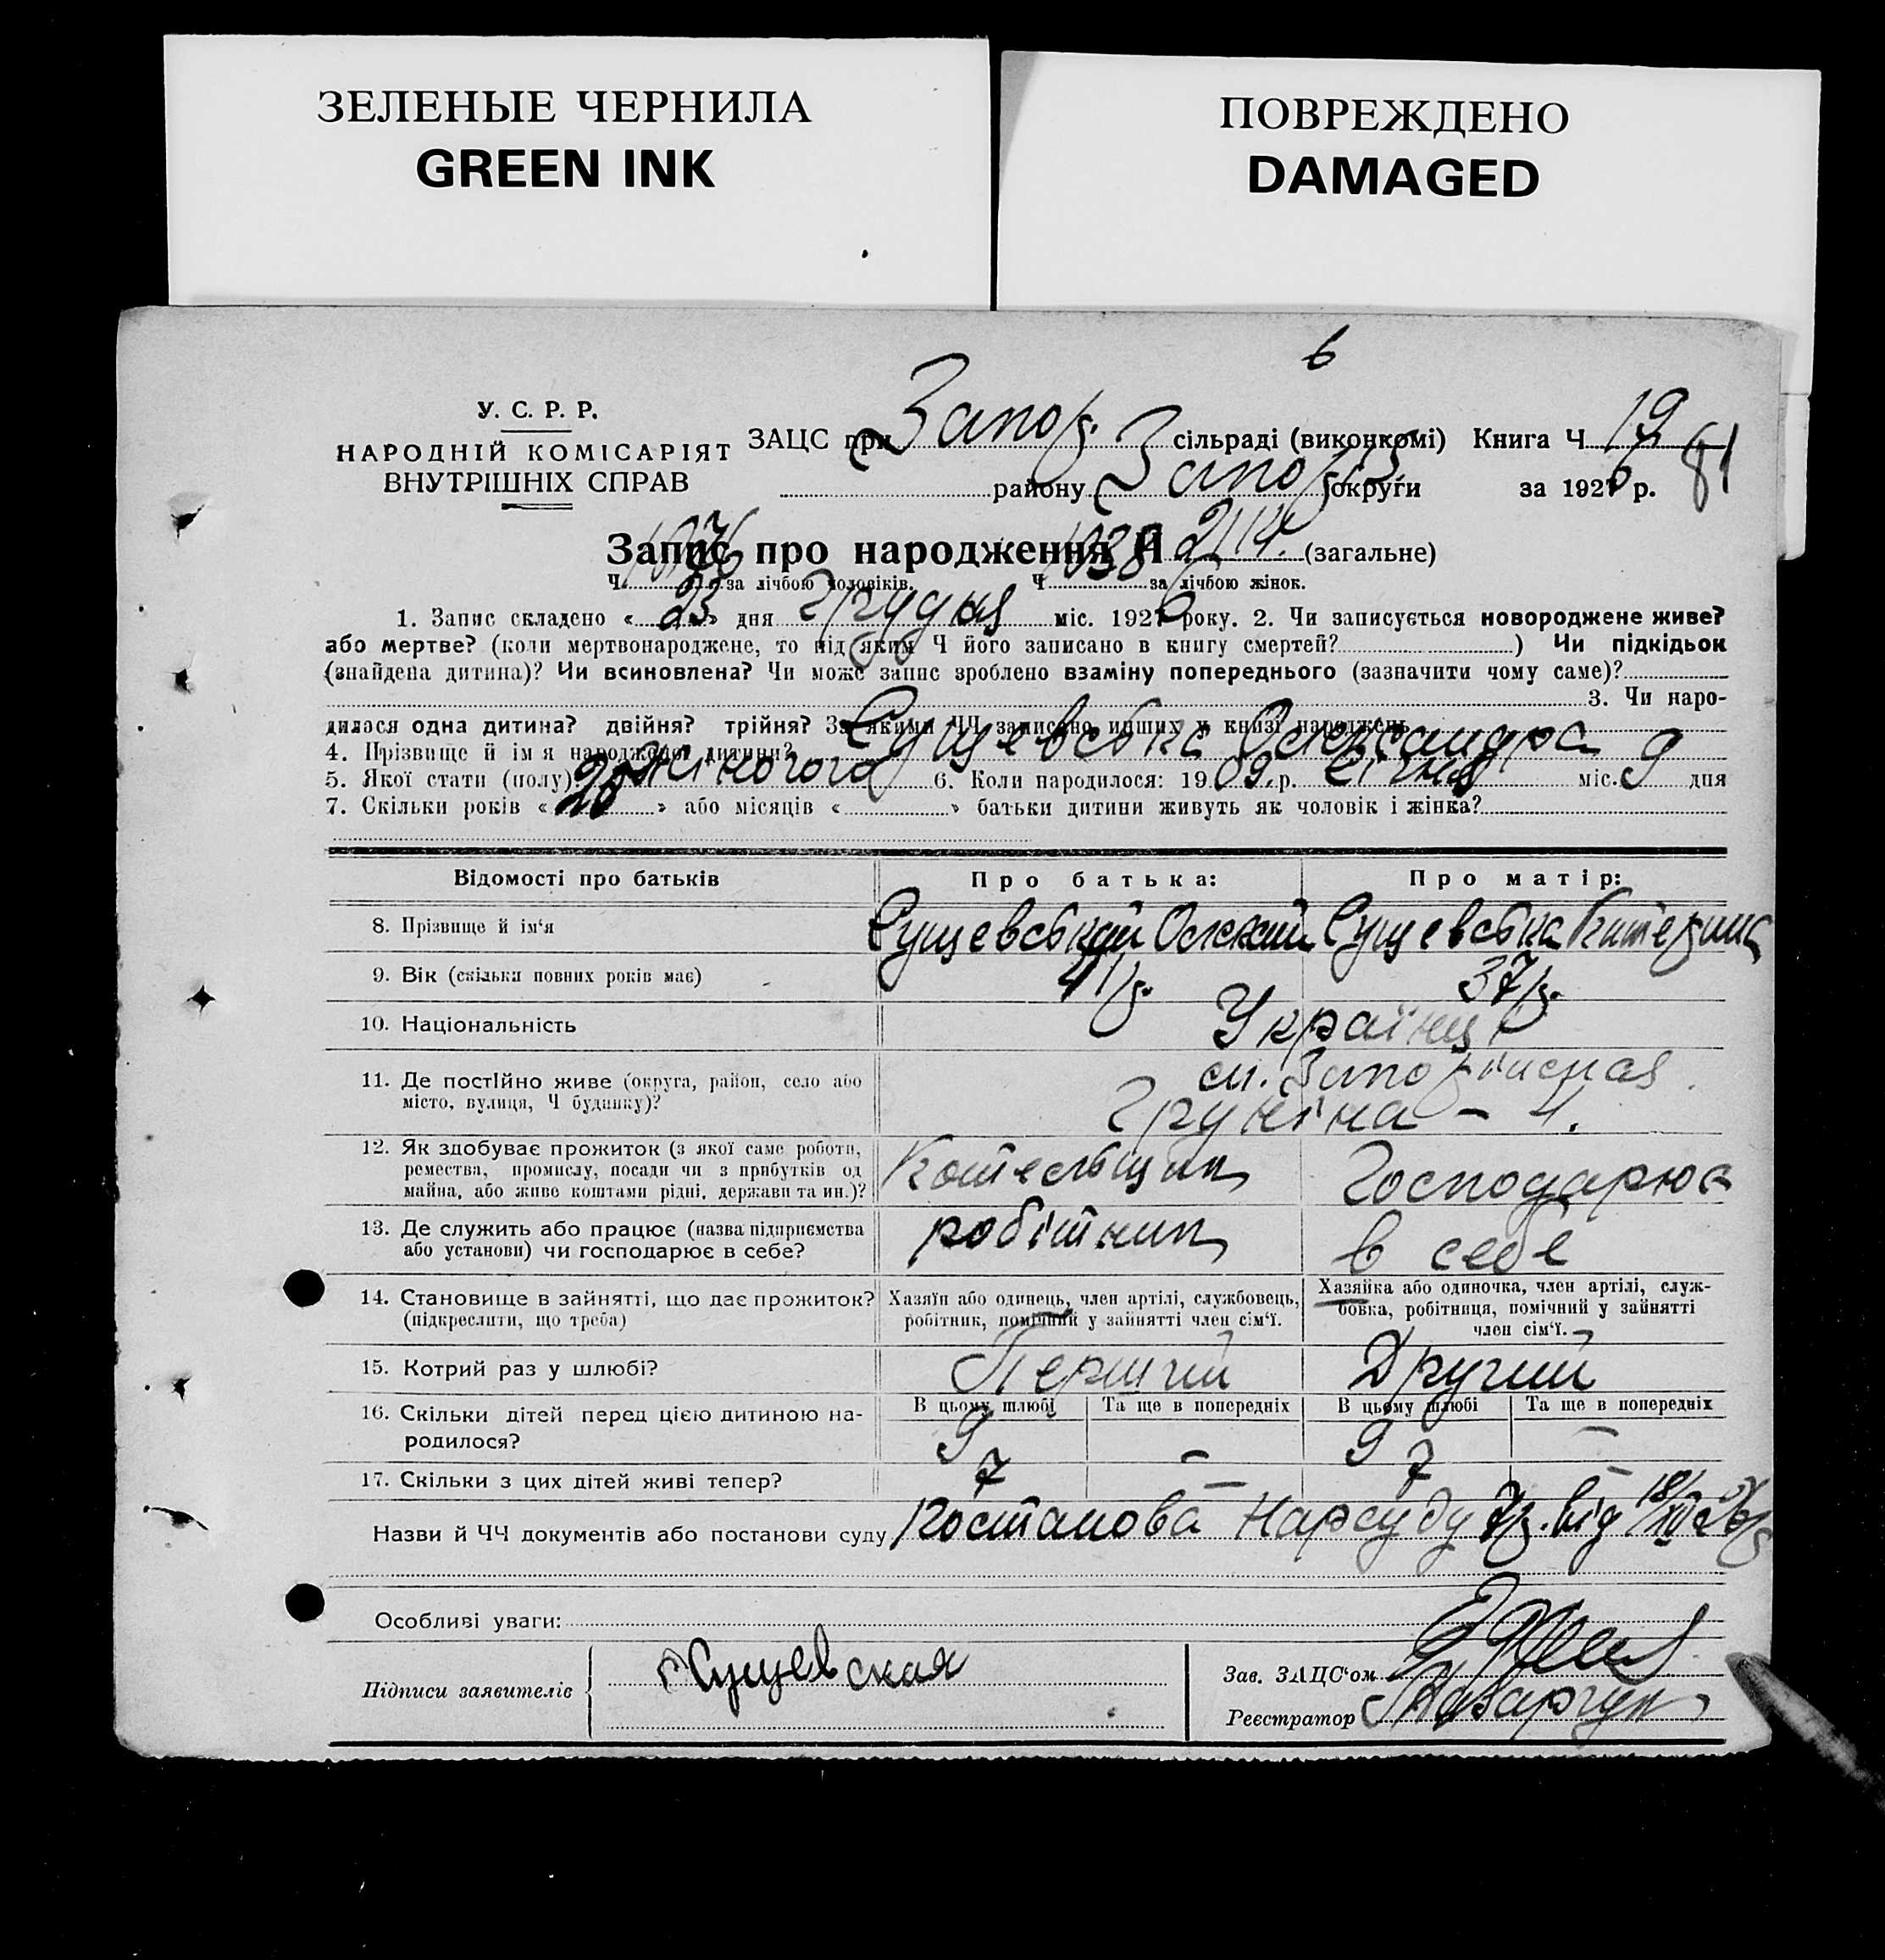 ЗЕЛЕНЫЕ ЧЕРНИЛА
GREEN INK
ПОВРЕЖДЕНО
DAMAGED
6
У. С. Р. Р.
НАРОДНІЙ КОМІСАРІЯТ
ВНУТРІШНІХ СПРАВ
ЗАЦС при Запор. сільраді (виконкомі) Книга Ч 19
району Запор. округи за 1926 р. 81
Запис про народження Ч 2114. (загальне)
Ч 1076 за лічбою чоловіків. Ч 1038 за лічбою жінок.
1. Запис складено « 23 » дня Грудня міс. 1926 року. 2. Чи записується новороджене живе?
або мертве? (коли мертвонароджене, то під яким Ч його записано в книгу смертей? ) Чи підкідьок
(знайдена дитина)? Чи всиновлена? Чи може запис зроблено взаміну попереднього (зазначити чому саме)?
3. Чи наро-
дилася одна дитина? двійня? трійня? За якими ЧЧ записано инших у книзі народжень
4. Прізвище й ім я народженої дитини? Сущевська Олександра
5. Якої стати (полу) жіночого 6. Коли народилося: 19 09 р. січня міс. 9 дня
7. Скільки років « 20 » або місяців « » батьки дитини живуть як чоловік і жінка?
Відомості про батьків Про батька: Про матір:
8. Прізвище й ім'я Сущевський Олексій Сущевська Катерина
9. Вік (скільки повних років має) 41 р. 37 р.
10. Національність Українці
11. Де постійно живе (округа, район, село або
місто, вулиця, Ч будинку)?
12. Як здобуває прожиток (з якої саме роботи,
ремества, промислу, посади чи з прибутків од
майна, або живе коштами рідні, держави та ин.)? Котельщик Господарює
13. Де служить або працює (назва підприємства
або установи) чи господарює в себе? робітник в себе
14. Становище в зайнятті, що дає прожиток?
(підкреслити, що треба)
Хазяїн або одинець, член артілі, службовець,
робітник, помічник у зайнятті член сім'ї.
Хазяйка або одиночка, член артілі, служ-
бовка, робітниця, помічний у зайнятті
член сім'ї.
15. Котрий раз у шлюбі? Перший Другий
16. Скільки дітей перед цією дитиною на-
родилося?
В цьому шлюбі Та ще в попередніх В цьому шлюбі Та ще в попередніх
9 – 9 –
17. Скільки з цих дітей живі тепер? 7 – 7 –
Назви й ЧЧ документів або постанови суду Постанова Нарсуду 7 р. від 18/XII 26 р
Особливі уваги:
Підписи заявителів Сущевская
Зав. ЗАЦС'ом
Реєстратор